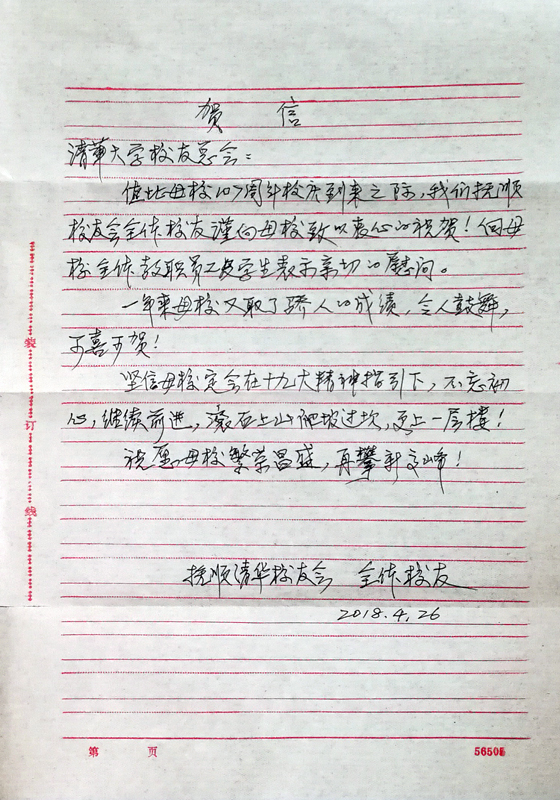 贺 信
清华大学校友总会：
值此母校107周年校庆到来之际，我们抚顺
校友会全体校友谨向母校致以衷心的祝贺！向母
校全体教职员工及学生表示亲切的慰问。
一年来母校又取了骄人的成绩，令人鼓舞，
可喜可贺！
坚信母校定会在十九大精神指引下，不忘初
心，继续前进，滚石上山爬坡过坎，更上一层楼！
祝愿母校繁荣昌盛，再攀新高峰！
抚顺清华校友会 全体校友
2018.4.26
装
订
线
第 页
56505